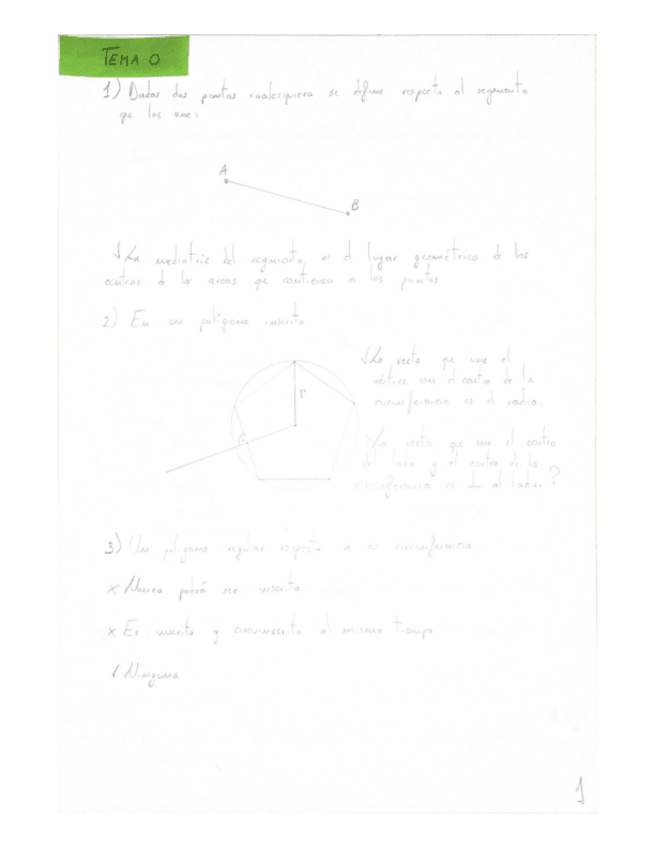 TEMA 0
1) Dados dos puntos cualesquiera se define respecto al segmento
que los une:
A
B
✓ La mediatriz del segmento, es el lugar geométrico de los
centros de los arcos que contienen a los puntos
2) En un polígono inscrito
✓ La recta que une el
vértice con el centro de la
circunferencia es el radio.
r
La recta que une el centro
del lado y el centro de la
circunferencia es ⊥ al lado. ?
3) Un polígono regular respecto a su circunferencia
x Nunca podrá ser inscrito
x Es inscrito y circunscrito al mismo tiempo
✓ Ninguna
1